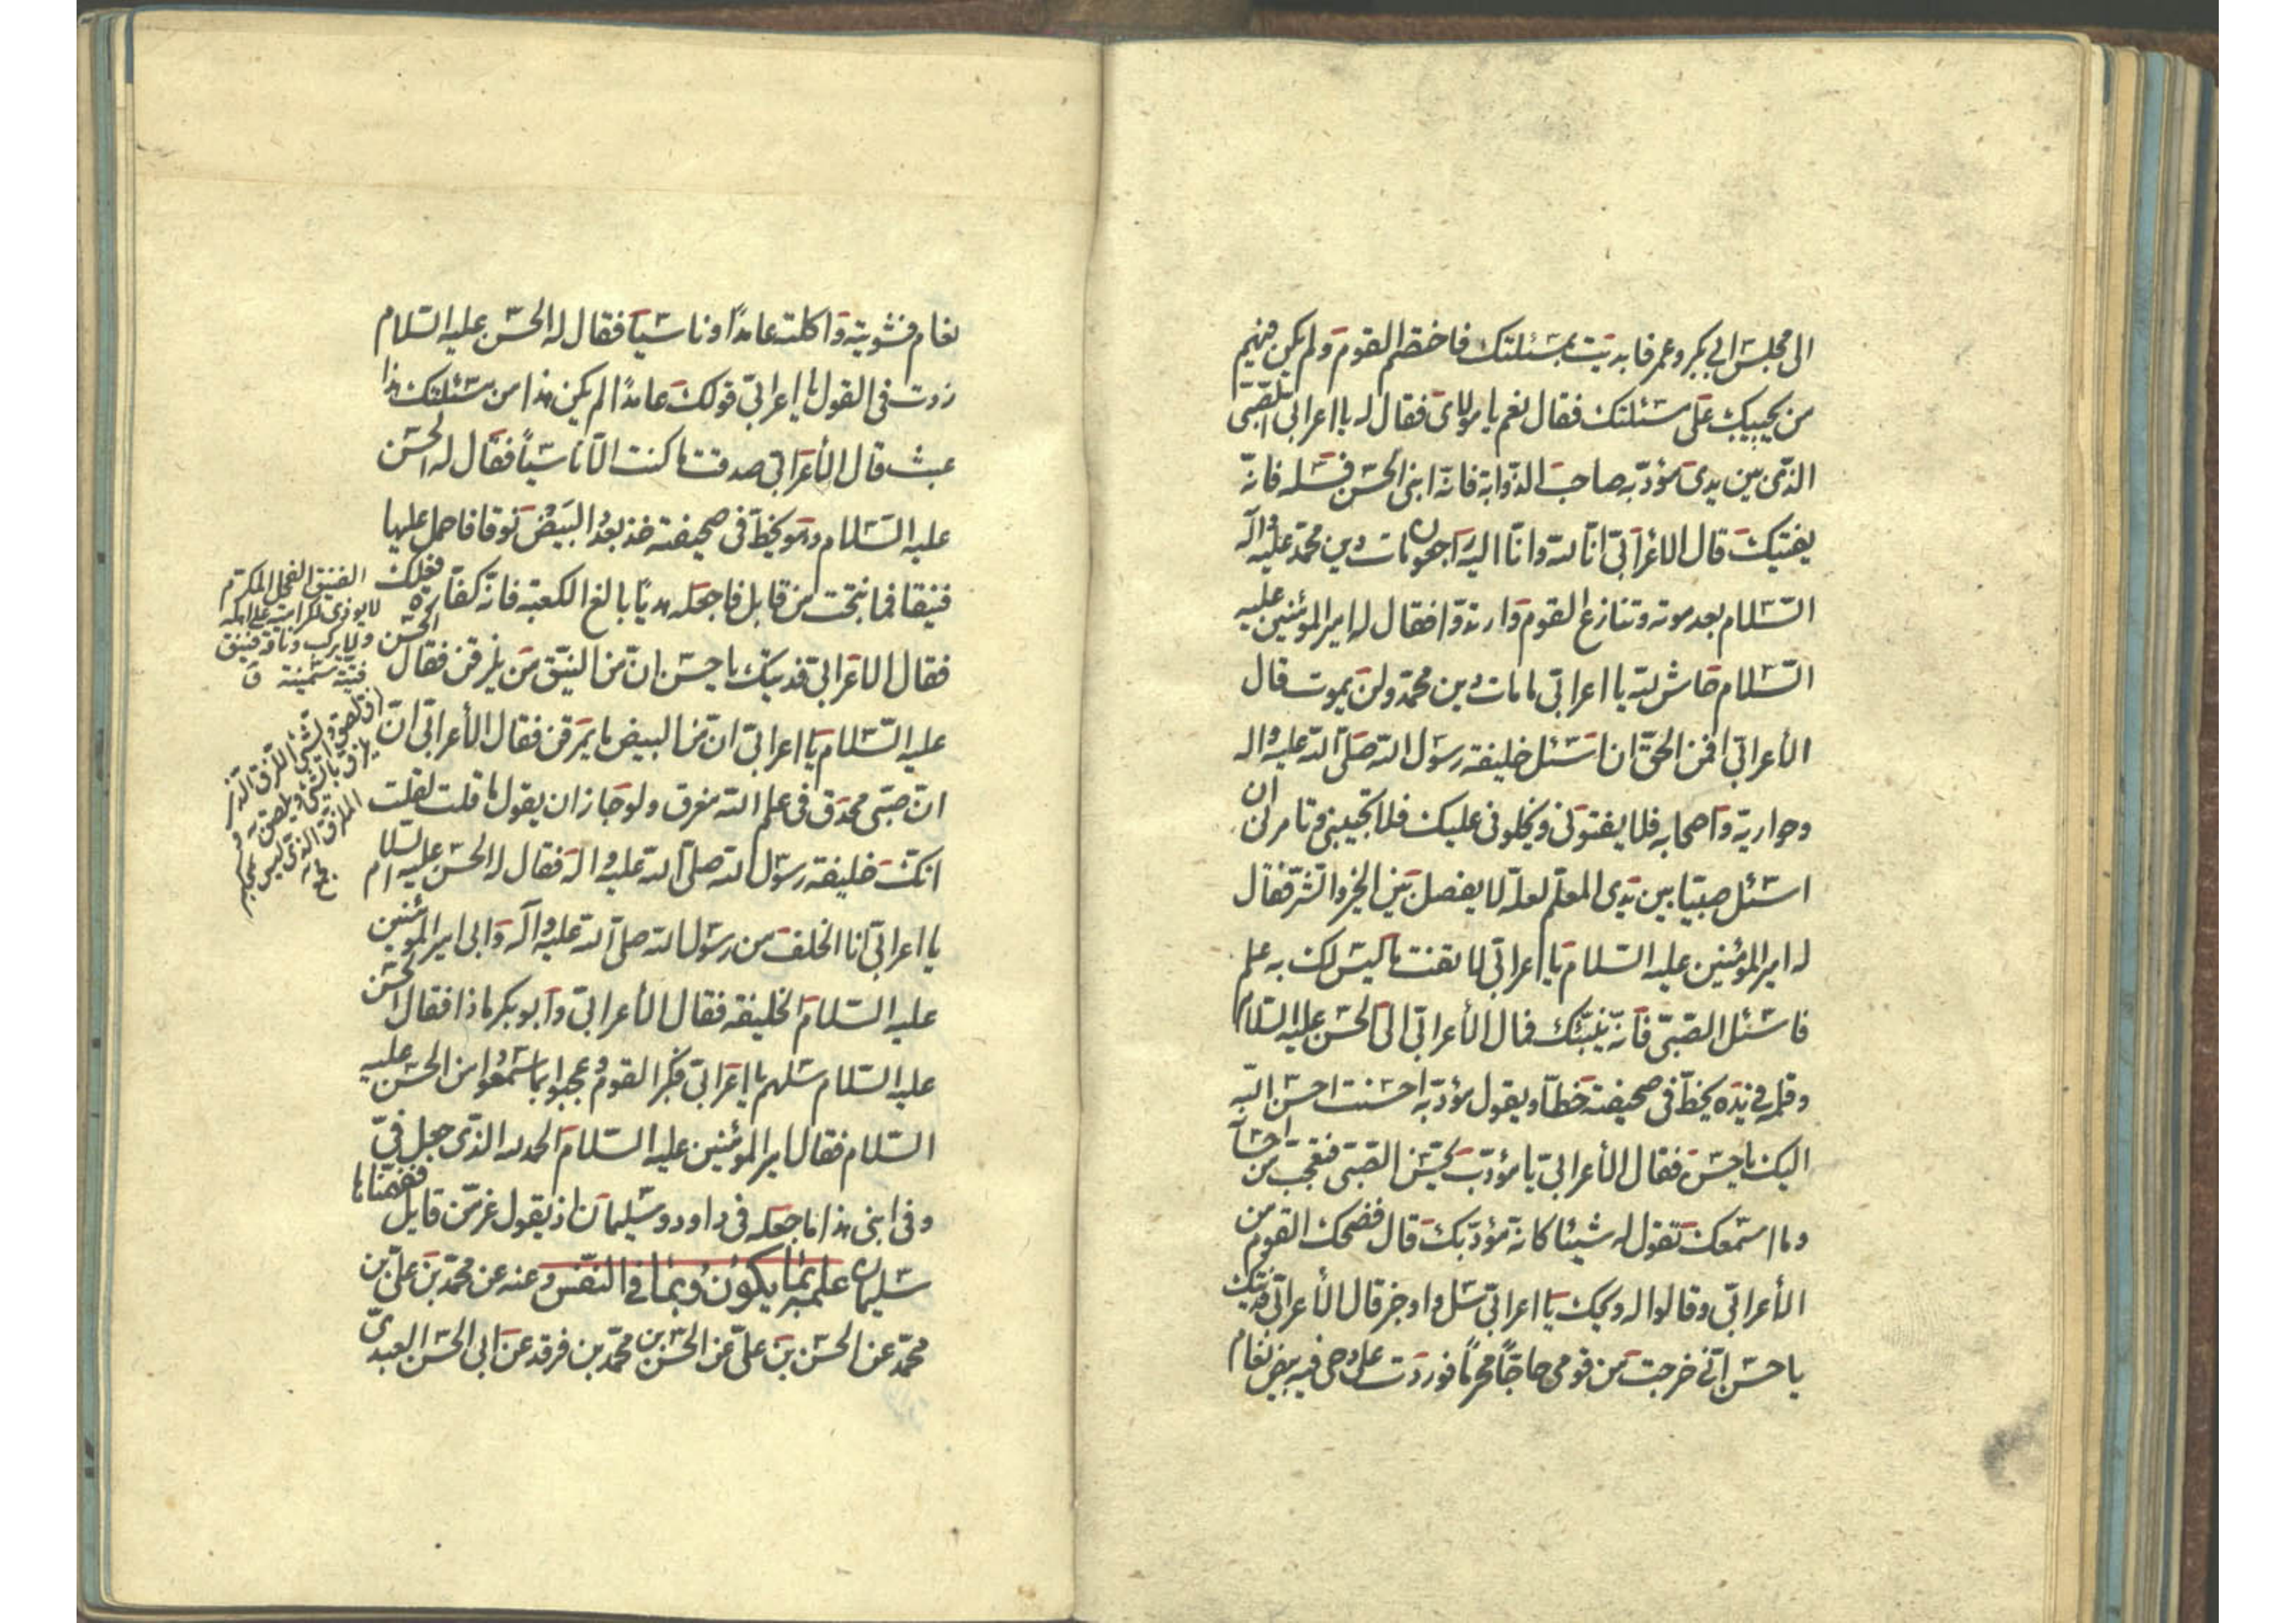 الى مجلس ابى بكر وعمر فابديت بمسئلتك فاخصم القوم ولم يكن فيهم
من يجيبك على مسئلتك فقال نعم يا مولاى فقال له يا اعرابى الصبى
الذى بين يدى مؤدبه صاحب الذوابة فانه ابنى الحسن فسله فانه
يفتيك قال الاعرابى انا لله وانا اليه راجعون مات دين محمد عليه وآله
السلام بعد موته وتنازع القوم وارتدوا فقال له امير المؤمنين عليه
السلام حاش لله يا اعرابى ما مات دين محمد ولن يموت قال
الأعرابى افمن الحق ان اسئل خليفة رسول الله صلى الله عليه واله
وحواريه واصحابه فلا يفتونى ويحلونى عليك فلا تجيبنى وتامرنى ان
اسئل صبيا بين يدى المعلم لعله لا يفصل بين الخير والشر فقال
له امير المؤمنين عليه السلام يا اعرابى لا تقف ما ليس لك به علم
فاسئل الصبى فانه ينبئك فمال الأعرابى الى الحسن عليه السلام
وقلمه فى يده يخط فى صحيفته خطا ويقول مؤدبه احسنت احسن الله
اليك يا حسن فقال الأعرابى يا مؤدب يحسن الصبى فتعجب من احسانه
وما اسمعك تقول له شيئا كانه مؤدبك قال فضحك القوم من
الأعرابى وقالوا له ويحك يا اعرابى سل واوجز قال الأعرابى فديتك
يا حسن انى خرجت من قومى حاجا محرما فوردت على ادحى فيه بيض نعام
نعام فشويته واكلته عامدا وناسيا فقال له الحسن عليه السلام
زدت فى القول يا اعرابى قولك عامدا لم يكن هذا من مسئلتك هذا
عبث قال الأعرابى صدقت ما كنت الا ناسيا فقال له الحسن
عليه السلام وهو يخط فى صحيفته خذ بعدد البيض نوقا فاحمل عليها
فنيقا فما نتجت من قابل فاجعله هديا بالغ الكعبة فانه كفارة فعلك
فقال الاعرابى فديتك يا حسن ان من النيق من يزلقن فقال الحسن
عليه السلام يا اعرابى ان من البيض ما يمرقن فقال الأعرابى ان
ان صبى محدق فى علم الله مغرق ولو جاز ان يقول ما قلت لقلت
انك خليفة رسول الله صلى الله عليه واله فقال له الحسن عليه السلام
يا اعرابى انا الخلف من رسول الله صلى الله عليه وآله وابى امير المؤمنين
عليه السلام الخليفة فقال الأعرابى وابو بكر ماذا فقال الحسن
عليه السلام سلهم يا اعرابى فكبر القوم وعجبوا بما سمعوا من الحسن عليه
السلام فقال امير المؤمنين عليه السلام الحمد لله الذى جعل فى
وفى ابنى هذا ما جعله فى داود وسليمان اذ يقول عز من قايل ففهمناها
سليمان علمه بما يكون وبما فى النفس وعنه عن محمد بن على بن
محمد عن الحسن بن على عن الحسن بن محمد بن فرقد عن ابى الحسن العبدى
الفنيق الفحل المكرم
لا يوذى لكرامته على اهله
ولا يركب وناقة فنيق
فتية سمينة ق